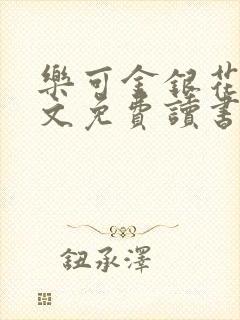 樂可金銀花
文免費讀書
鈕承澤